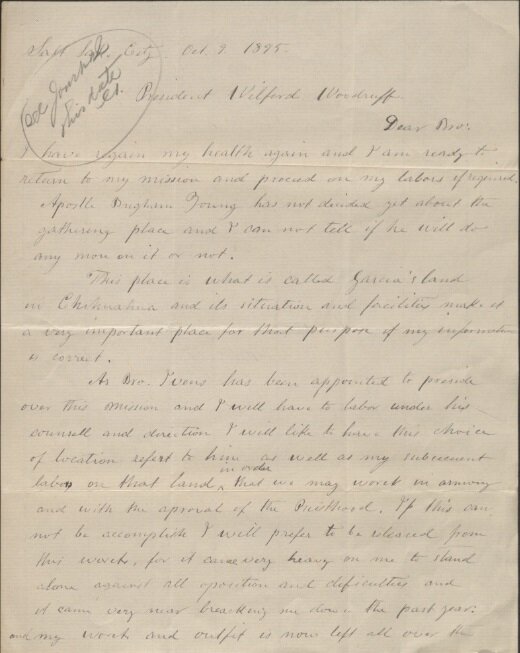 Salt Lak. City Oct. 9. 1895.
See Journal
this date
President Wilford Woodruff.
Dear Bro:
I have regain my health again and I am ready to
return to my mission and proceed on my labors if required.
Apostle Brigham Young has not decided yet about the
gathering place and I can not tell if he will do
any more on it or not.
This place is what is called Garcia's land
in Chihuahua and its situation and facilities make it
a very important place for that purpose if my information
is correct.
As Bro. Ivens has been appointed to preside
over this mission and I will have to labor under his
counsell and direction I will like to have this choice
of location refert to him as well as my subsecuent
labors on that land in order that we may work in armony
and with the aproval of the Priesthood. If this can
not be accomplish I will prefer to be released from
this work, for it came very heavy on me to stand
alone against all oposition and dificulties and
it came very near breacking me down the past year:
and my work and outfit is now left all over the